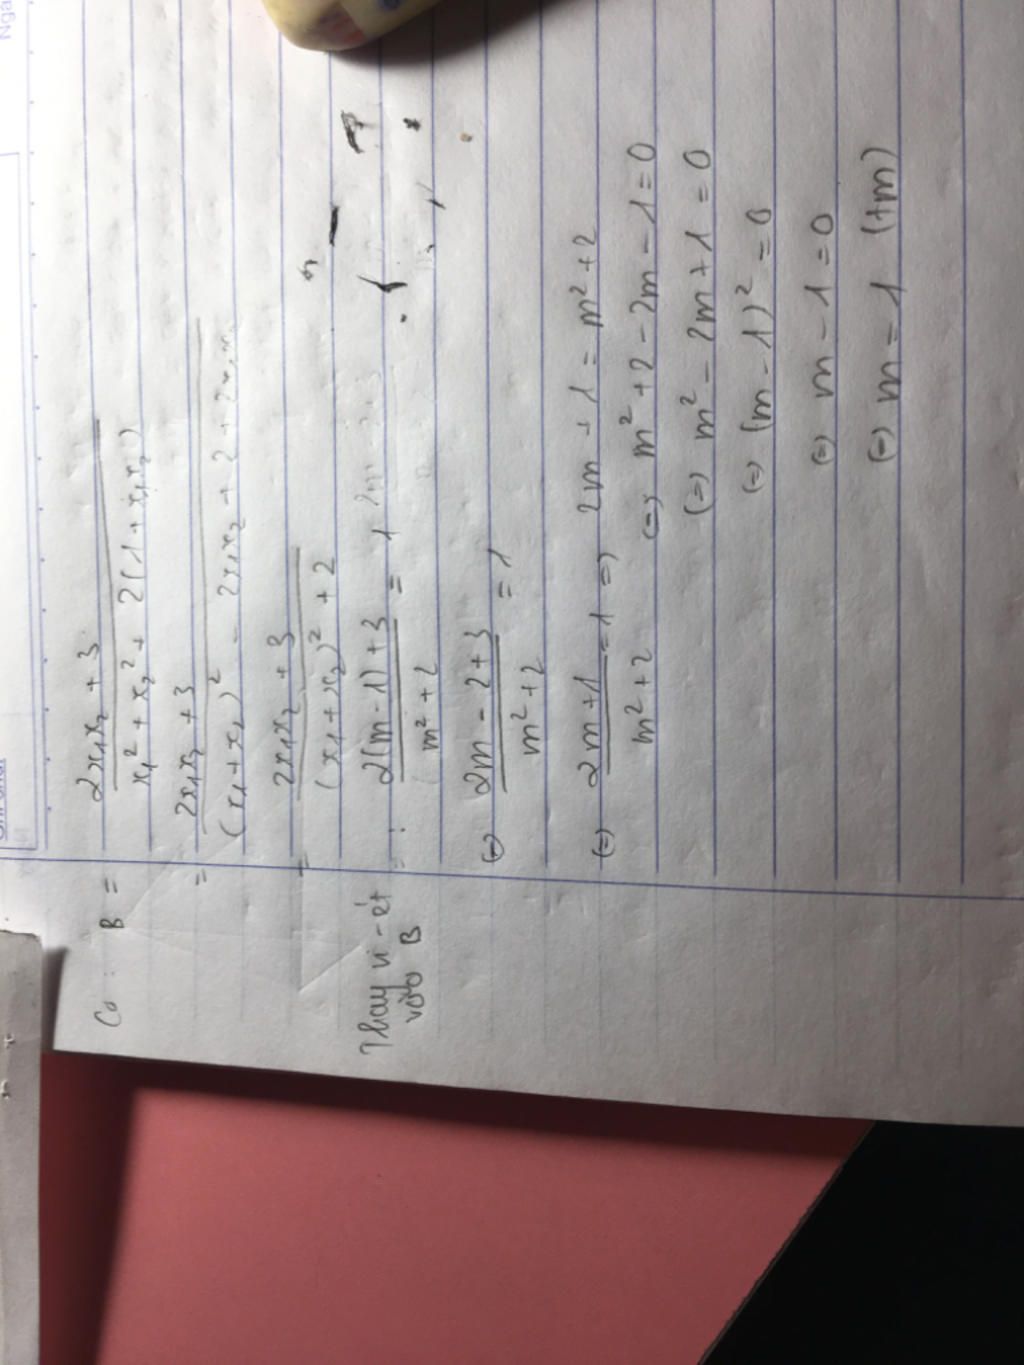 Có B = 2x₁x₂ + 3 / x₁² + x₂² + 2(1 + x₁x₂)
= 2x₁x₂ + 3 / (x₁ + x₂)² - 2x₁x₂ + 2 + 2x₁x₂
= 2x₁x₂ + 3 / (x₁ + x₂)² + 2
Thay vi-ét vào B : 2(m - 1) + 3 / m² + 2 = 1
(=) 2m - 2 + 3 / m² + 2 = 1
(=) 2m + 1 / m² + 2 = 1 =) 2m + 1 = m² + 2
(=) m² + 2 - 2m - 1 = 0
(=) m² - 2m + 1 = 0
(=) (m - 1)² = 0
(=) m - 1 = 0
(=) m = 1 (tm)